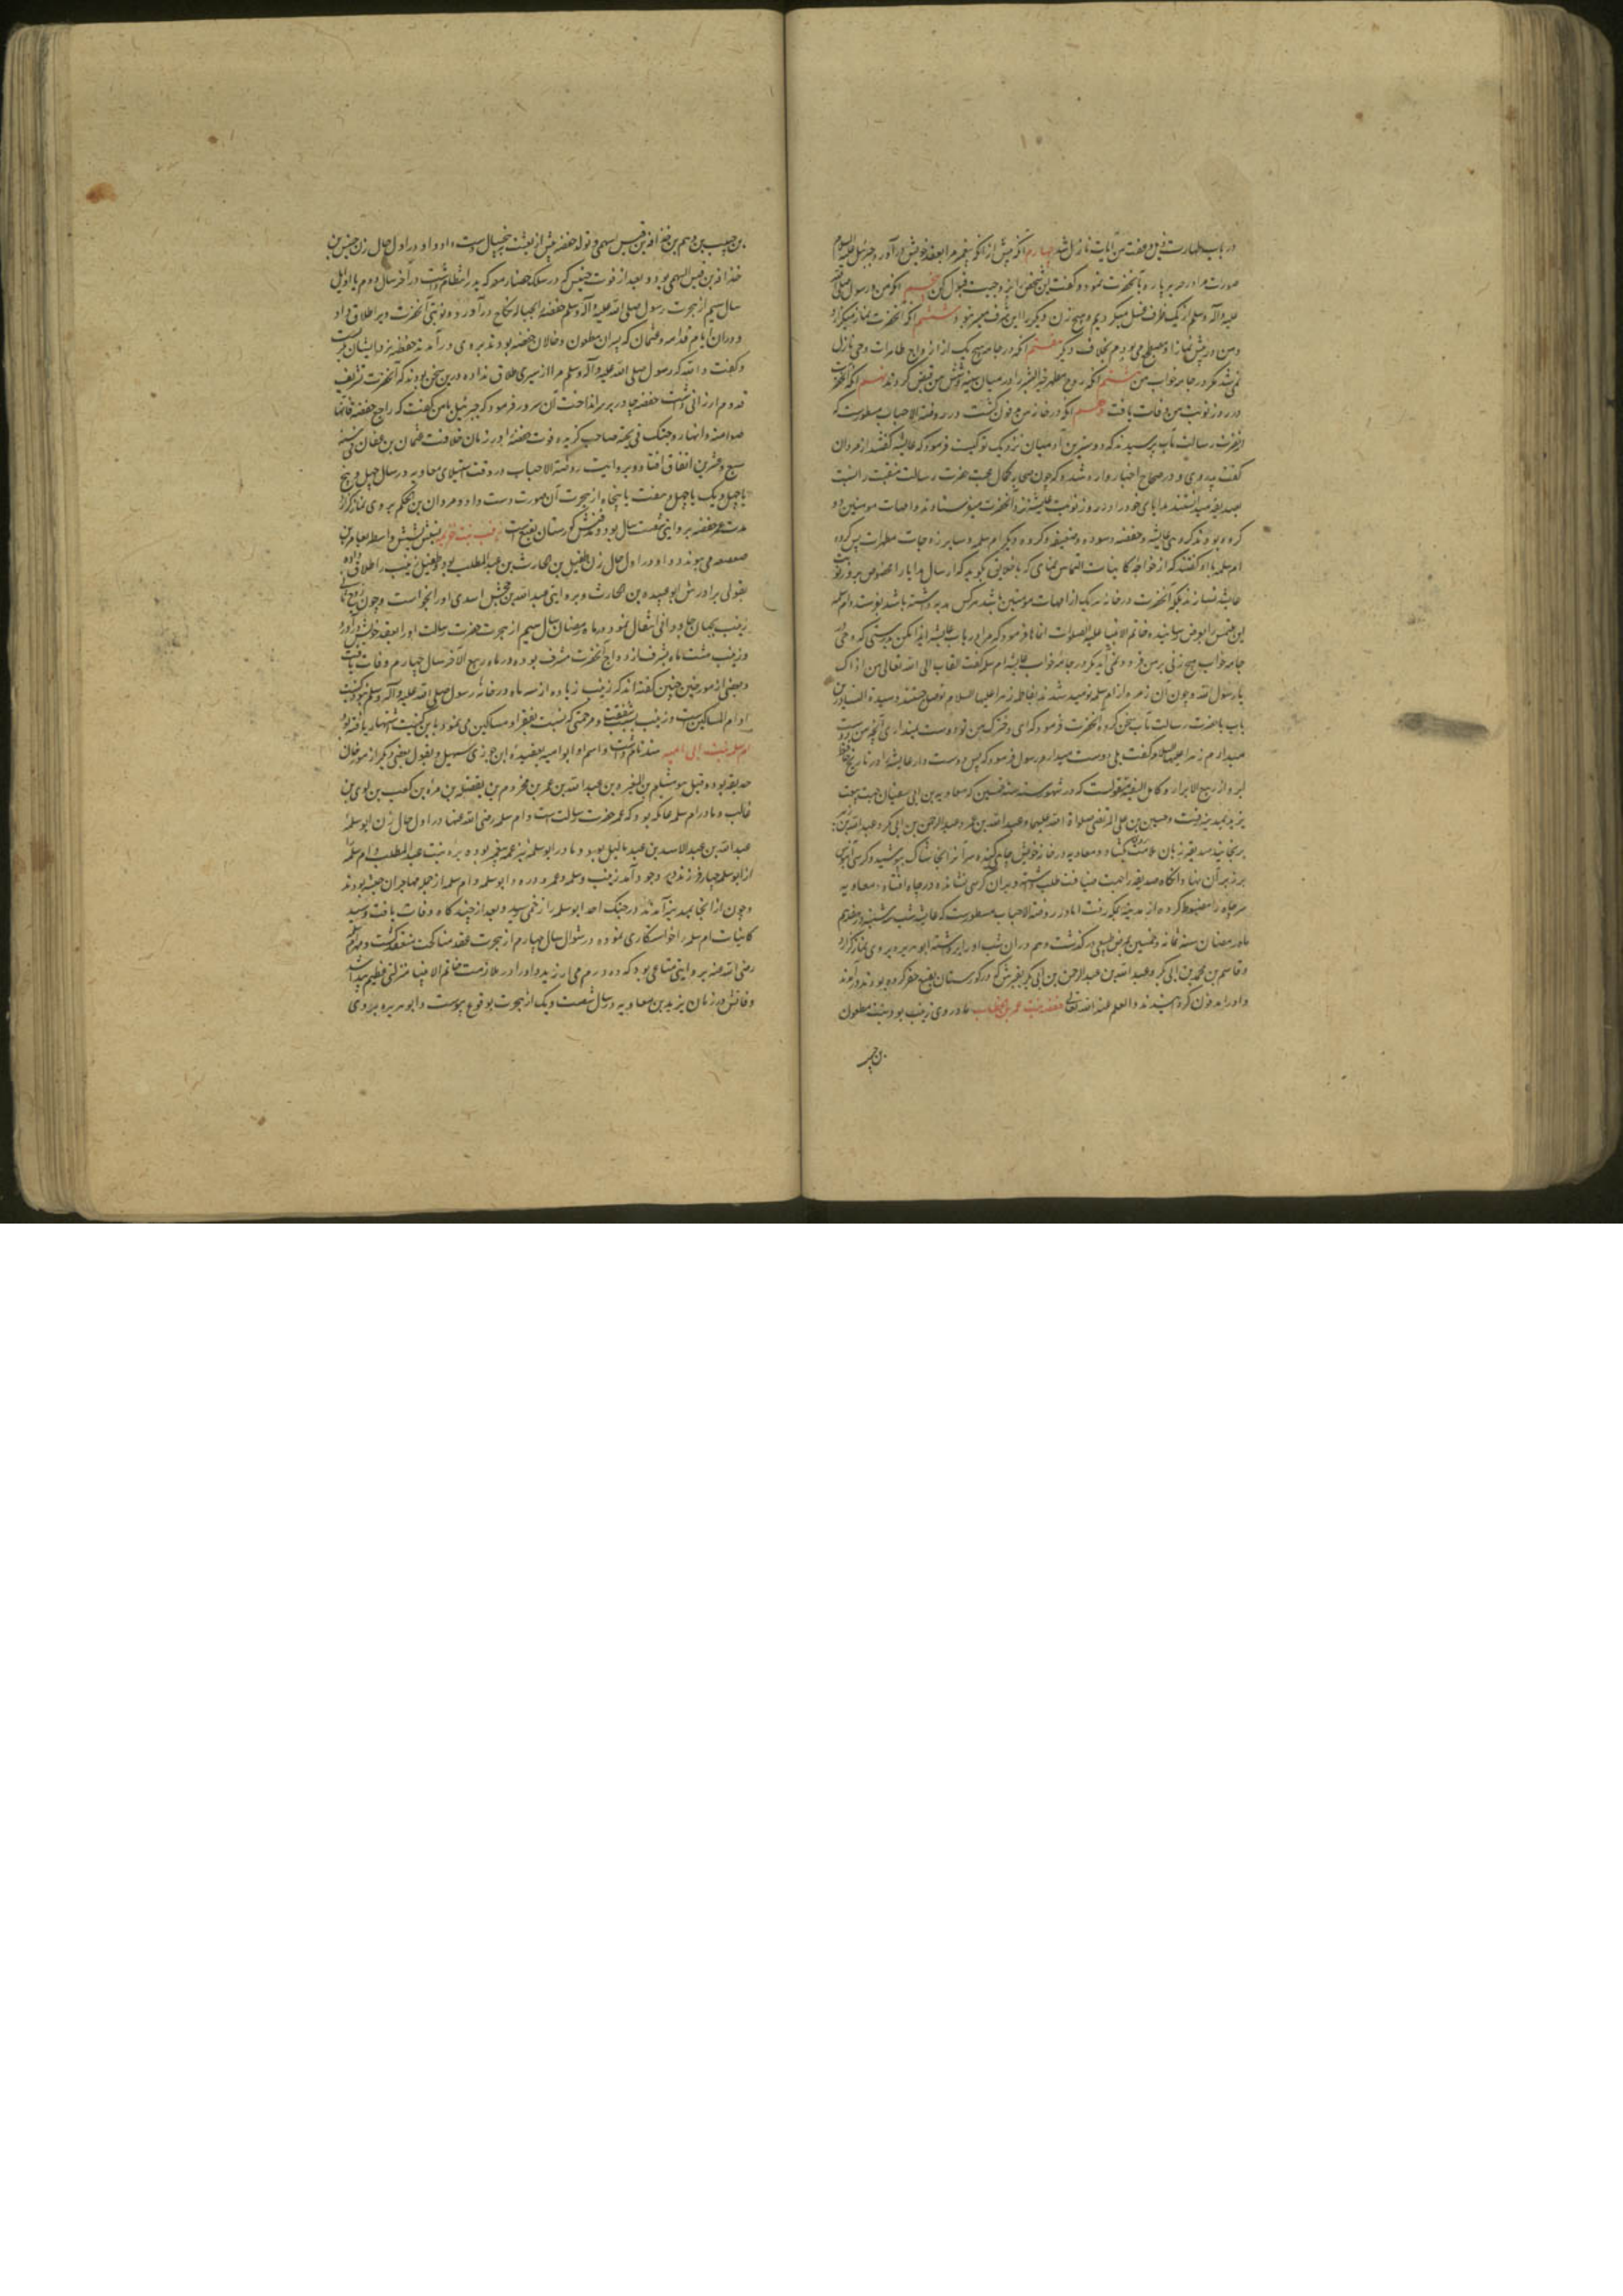 در باب طهارت ذیل و عفت من آیات نازل شد چهارم آنکه پیش از آنکه پیغمبر مرا بعقد خویش درآورد جبرئیل علیه السلام
صورت مرا در حریر پاره بآنحضرت نمود و گفت این شخص را بزوجیت قبول کن پنجم آنکه من و رسول صلی الله
علیه وآله وسلم از یک ظرف غسل میکردیم و هیچ زن دیگر را این شرف میسر نبود ششم آنکه آنحضرت نماز میگزارد
و من در پیش نماز او مضطجع می بودم بخلاف دیگر هفتم آنکه در جامه هیچ یک از ازواج طاهرات وحی نازل
نمی شد مگر در جامه خواب من هشتم آنکه روح مطهر خیر البشر را در میان سینه و شش من قبض کردند نهم آنکه آنحضرت
در روز نوبت من وفات یافت دهم آنکه در خانه من مدفون گشت در روضة الاحباب مسطورست که
از حضرت رسالت مآب پرسیدند که دوسترین آدمیان نزدیک تو کیست فرمود که عایشه گفتند از مردان
گفت پدر وی و در صحاح اخبار وارد شده که چون صحابه کمال محبت حضرت رسالت منقبت را نسبت
بصدیقه میدانستند هدایای خود را در روز نوبت عایشه نزد آنحضرت میفرستادند و امهات مومنین دو
گروه بودند گروهی عایشه و حفصه و سوده و صفیه و گروه دیگر ام سلمه و سایر زوجات مطهرات پس گروه
ام سلمه با او گفتند که از خواجه کاینات التماس نمای که با خلایق بگوید که ارسال هدایا را مخصوص بروز نوبت
عایشه نسازند بلکه آنحضرت در خانه هر یک از امهات مومنین باشد هر کس هدیه داشته باشد بفرستد و ام سلمه
این ملتمس را بعرض رسانیده خاتم الانبیا علیه الصلوات انماها فرمود که مرا در باب عایشه ایذا مکن بدرستی که وحی در
جامه خواب هیچ زنی بر من فرود نمی آید مگر در جامه خواب عایشه ام سلمه گفت اتوب الی الله تعالی من اذاک
یا رسول الله و چون آن زمره از ام سلمه نومید شدند بفاطمه زهرا علیها السلام توسل جستند و سیدة النسا در آن
باب با حضرت رسالت مآب سخن کرد آنحضرت فرمود که ای دخترک من تو دوست نمیداری آنچه من دوست
میدارم زهرا علیها السلام گفت بلی دوست میدارم رسول فرمود که پس دوست دار عایشه را و در تاریخ حافظ
ابرو از ربیع الابرار و کامل السفینه منقولست که در شهور سنه ست خمسین که معاویه بن ابی سفیان جهت بیعت
یزید بمدینه رفت و حسین بن علی المرتضی صلواة الله علیهما و عبد الله بن عمر و عبد الرحمن بن ابی بکر و عبد الله بن زبیر
برنجانید صدیقه زبان ملامت بگشاد و معاویه در خانه خویش چاهی کنده سر آنرا بخاشاک بپوشید و کرسی آبنوس
بر زبر آن نهاد و آنگاه صدیقه را جهت ضیافت طلب داشته و بر آن کرسی نشانده در چاه افتاد و معاویه
سر چاه را مضبوط کرده از مدینه بمکه رفت اما در روضة الاحباب مسطورست که عایشه شب سه شنبه هفدهم
ماه رمضان سنه ثمانه و خمسین بمرض طبیعی درگذشت و هم در آن شب او را برداشته ابو هریره بر وی نماز گزارد
و قاسم بن محمد بن ابی بکر و عبد الله بن عبد الرحمن بن ابی بکر بقبرش که در گورستان بقیع حفر کرده بودند درآمدند
و او را مدفون گردانیدند والعلم عند الله تعالی حفصه بنت عمر بن الخطاب مادر وی زینب بود بنت مظعون
بن حبیب
بن حبیب بن وهب بن حذافه بن قیس سهمی و تولد حفصه پیش از بعثت به پنج سال دست داد و او در اول حال زن خنیس بن
حذافه بن قیس السهمی بود و بعد از فوت خنیس که در سلک حضار معرکه بدر انتظام داشت در آخر سال دوم یا اوایل
سال سیم از هجرت رسول صلی الله علیه وآله وسلم حفصه را بحباله نکاح درآورد و نوبتی آنحضرت ویرا طلاق داد
و در آن ایام قدامه و عثمان که پسران مظعون و خالان حفصه بودند بر وی درآمدند حفصه نزد ایشان بگریست
و گفت والله که رسول صلی الله علیه وآله وسلم مرا از سیری طلاق نداده و درین سخن بودند که آنحضرت تشریف
قدوم ارزانی داشت حفصه چادر بر سر انداخت آن سرور فرمود که جبرئیل با من گفت که راجع حفصه فانها
صوامة وانها زوجتک فی الجنة صاحب گزیده فوت حفصه را در زمان خلافت عثمان بن عفان فی سنه
سبع و عشرین اتفاق افتاد و بروایت روضة الاحباب در وقت استیلای معاویه در سال چهل و پنج
یا چهل و یک یا چهل و هفت یا پنجاه از هجرت آن صورت دست داد و مروان بن الحکم بر وی نماز گزارد
مدت عمر حفصه بروایتی شصت سال بود و مدفنش گورستان بقیع است زینب بنت خزیمه نسبتش بشش واسطه بعامر بن
صعصعه می پیوندد و او در اول حال زن طفیل بن حارث بن عبد المطلب بود و طفیل زینب را طلاق داده
بقولی برادرش ابو عبیده بن حارث و بروایتی عبد الله بن جحش اسدی او را بخواست و چون زوج ثانی
زینب بجهان جاودانی انتقال نمود در ماه رمضان سال سیم از هجرت حضرت رسالت او را بعقد خویش درآورد
و زینب هشت ماه بشرف ازدواج آنحضرت مشرف بوده در ماه ربیع الآخر سال چهارم وفات یافت
و بعضی از مورخین چنین گفته اند که زینب زیاده از سه ماه در خانه رسول صلی الله علیه وآله وسلم نبود و کنیت
او ام المساکین است و زینب بسبب شفقت و مرحمتی که نسبت بفقرا و مساکین می نمود باین کنیت اشتهار یافته بود
ام سلمه بنت ابی امیه هند نام داشت و اسم ابو امیه بعقیده ابن جوزی سهیل و بقول بعضی دیگر از مورخان
حذیفه بود و قیل هو سهیل بن المغیره بن عبد الله بن عمر بن مخزوم بن یقظه بن مرة بن کعب بن لوی بن
غالب و مادر ام سلمه عاتکه بود که عمه حضرت رسالت است و ام سلمه رضی الله عنها در اول حال زن ابو سلمه
عبد الله بن عبد الاسد بن عبد یالیل بود و مادر ابو سلمه نیز عمه پیغمبر بوده بره بنت عبد المطلب و ام سلمه را
از ابو سلمه چهار فرزند در وجود آمد زینب و سلمه و عمر و دره و ابو سلمه و ام سلمه از جمله مهاجران حبشه بودند
و چون از آنجا بمدینه آمدند در جنگ احد ابو سلمه را زخمی رسید و بعد از چند گاه وفات یافت و سید
کاینات ام سلمه را خواستگاری نموده در شوال سال چهارم از هجرت عقد مناکحت منعقد گشت و مهر ام سلمه
رضی الله عنه بروایتی متاعی بود که ده درم می ارزید و او را در ملازمت خاتم الانبیا منزلتی عظیم پیدا شد
و فاتش در زمان یزید بن معاویه در سال شصت و یک از هجرت بوقوع پیوست و ابو هریره بر وی